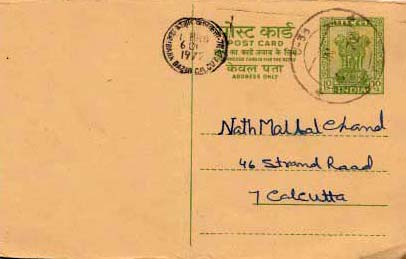 पोस्ट कार्ड
POST CARD
केवल पता
ADDRESS ONLY
INDIA
Nath Mal Lal Chand
46 Strand Road
7 Calcutta